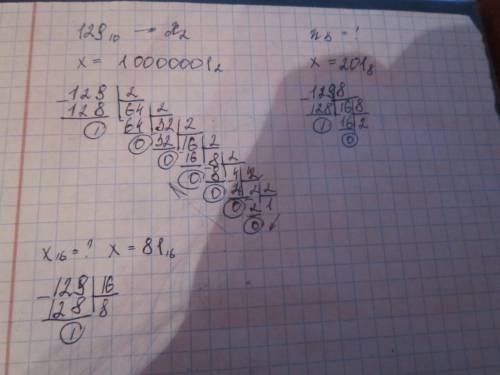 129₁₀ → x₂
x = 10000001₂
129 | 2
128 | 64 | 2
1 | 64 | 32 | 2
0 | 32 | 16 | 2
0 | 16 | 8 | 2
0 | 8 | 4 | 2
0 | 4 | 2 | 2
0 | 2 | 1
0
x₈ = ?
x = 201₈
129 | 8
128 | 16 | 8
1 | 16 | 2
0
x₁₆ = ? x = 81₁₆
129 | 16
128 | 8
1